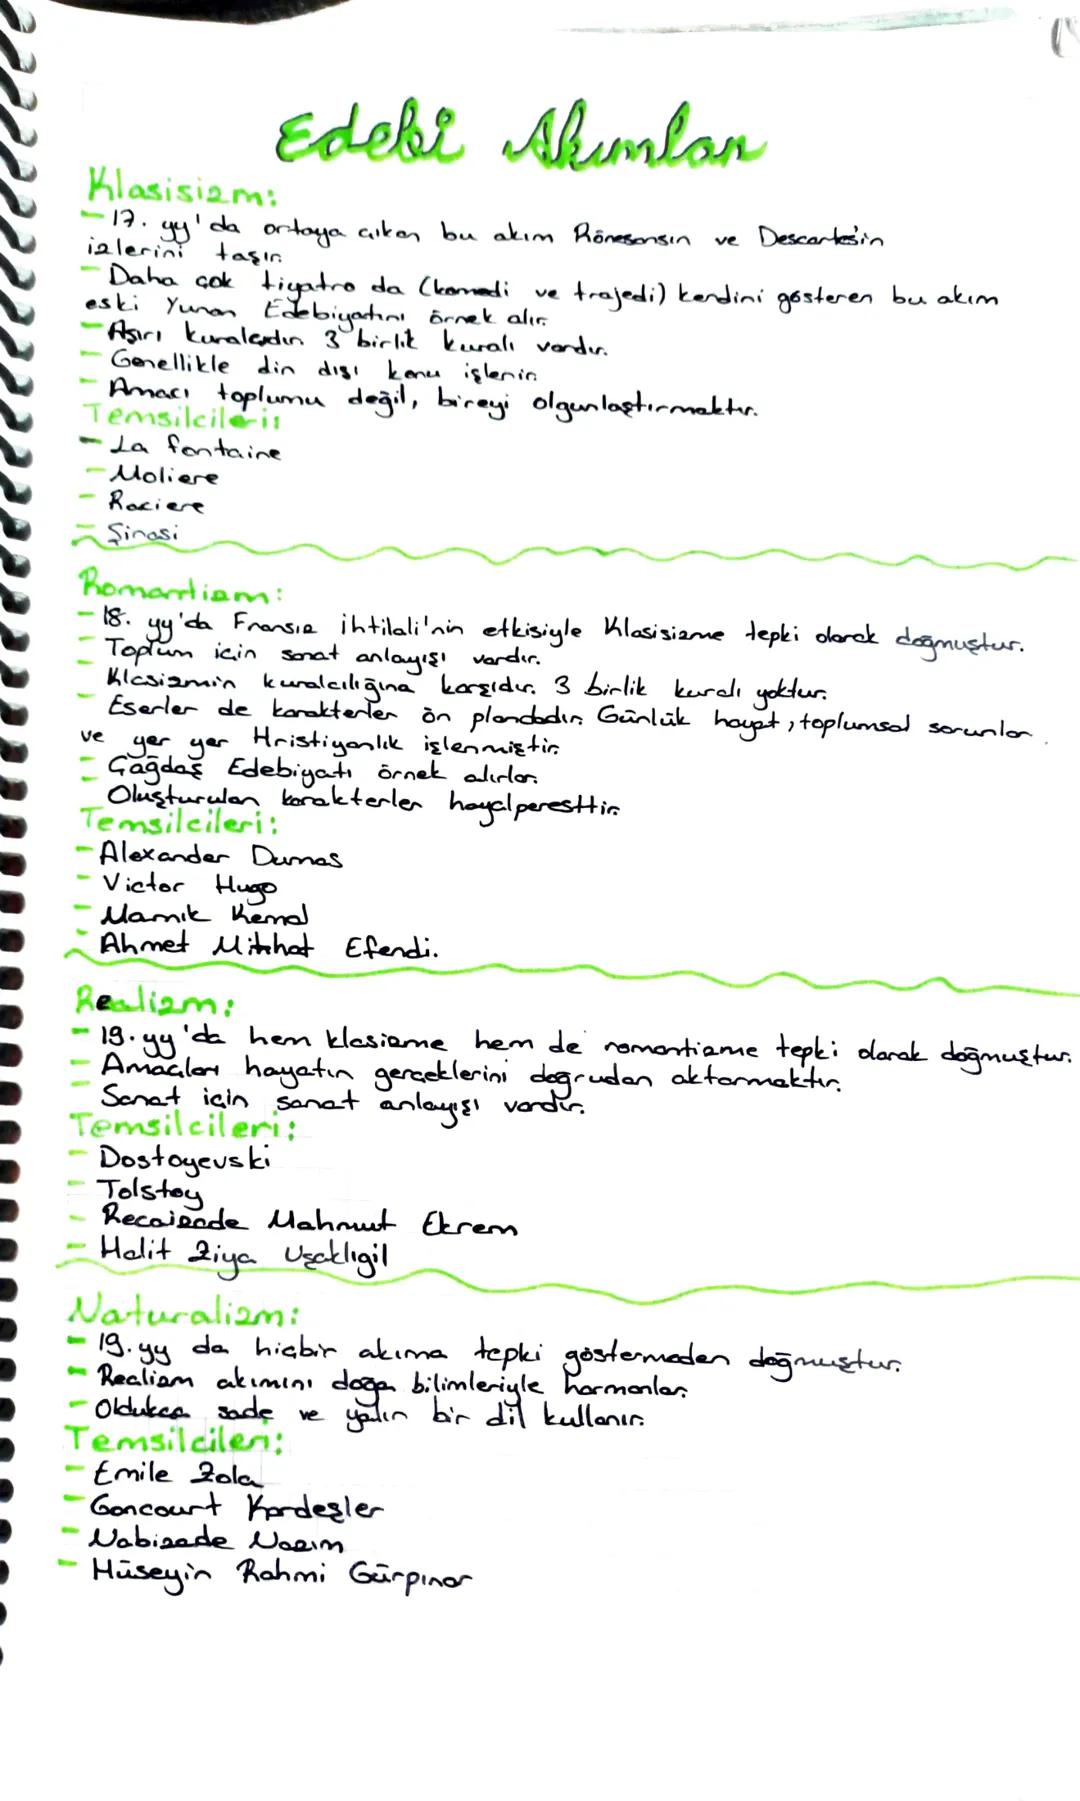 Edebi Akımları
Klasisizm:
- 17. yy'da ortaya çıkan bu akım Rönesansın ve Descartes'in
izlerini taşır.
- Daha çok tiyatro da (komedi ve trajedi) kendini gösteren bu akım
eski Yunan Edebiyatını örnek alır.
- Aşırı kuralcıdır. 3 birlik kuralı vardır.
- Genellikle din dışı konu işlenir.
- Amacı toplumu değil, bireyi olgunlaştırmaktır.
Temsilcileri:
- La fontaine
- Moliere
- Raciere
- Şinasi
Romantizm:
- 18. yy'da Fransız ihtilali'nin etkisiyle Klasisizme tepki olarak doğmuştur.
- Toplum için sanat anlayışı vardır.
- Klasizmin kuralcılığına karşıdır. 3 birlik kuralı yoktur.
- Eserler de karakterler ön plandadır. Günlük hayat, toplumsal sorunlar
ve yer yer Hristiyanlık işlenmiştir.
- Çağdaş Edebiyatı örnek alırlar.
- Oluşturulan karakterler hayalperesttir.
Temsilcileri:
- Alexander Dumas
- Victor Hugo
- Namık Kemal
- Ahmet Mithat Efendi.
Realizm:
- 19. yy'da hem klasizme hem de romantizme tepki olarak doğmuştur.
- Amaçları hayatın gerçeklerini doğrudan aktarmaktır.
- Sanat için sanat anlayışı vardır.
Temsilcileri:
- Dostoyevski
- Tolstoy
- Recaizade Mahmut Ekrem
- Halit Ziya Uşaklıgil
Naturalizm:
- 19. yy da hiçbir akıma tepki göstermeden doğmuştur.
- Realizm akımını doğa bilimleriyle harmanlar.
- Oldukça sade ve yalın bir dil kullanır.
Temsilcileri:
- Emile Zola
- Goncourt Kardeşler
- Nabizade Nazım
- Hüseyin Rahmi Gürpınar